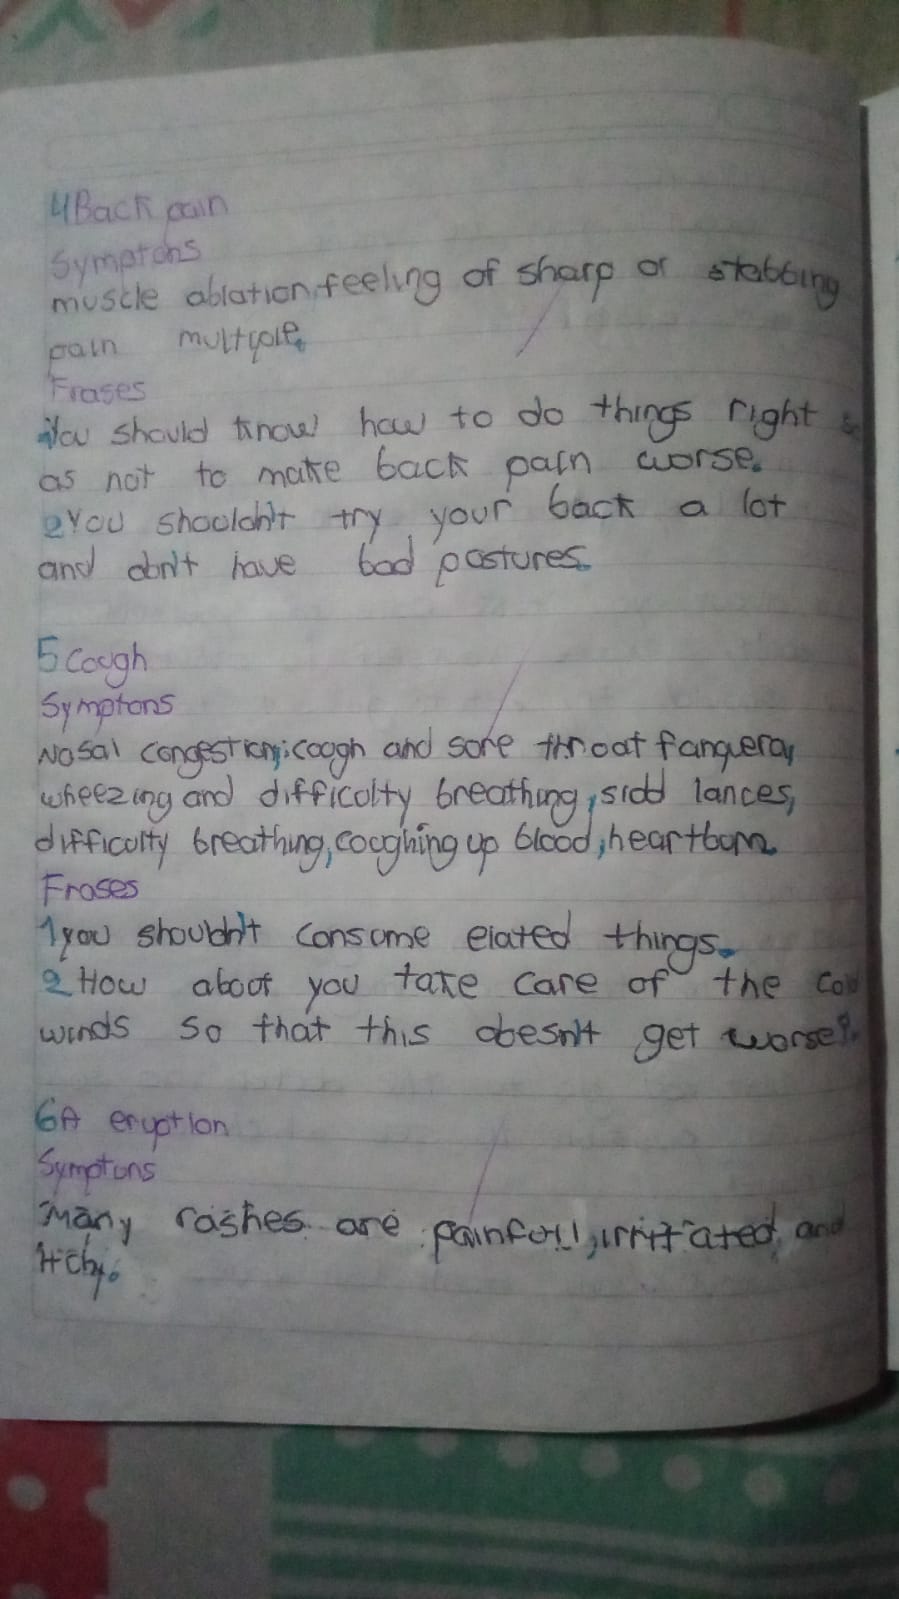 4 Back pain
Symptons
muscle ablation, feeling of sharp or stabbing
pain multiple.
Frases
1 You should know how to do things right so
as not to make back pain worse.
2 You shouldn't try your back a lot
and don't have bad postures.
5 Cough
Symptons
Nasal congestion, cough and sore throat
wheezing and difficolty breathing,
difficulty breathing, coughing up blood, heartburn
Frases
1 you shouldn't consome elated things.
2 How about you take care of the cold
winds so that this doesn't get worse?
6 A eruption
Symptons
Many rashes are painfull, irritated, and
itchy.